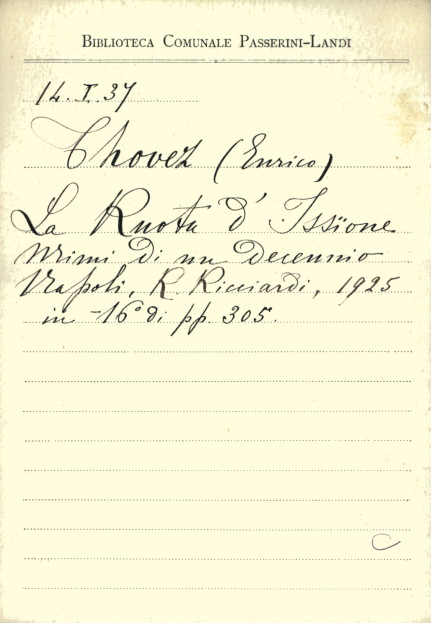 BIBLIOTECA COMUNALE PASSERINI-LANDI
14. I. 37
Thovez (Enrico)
La Ruota d' Issione
Mimi di un Decennio
Napoli, R. Ricciardi, 1925
in -16° di pp. 305.
C